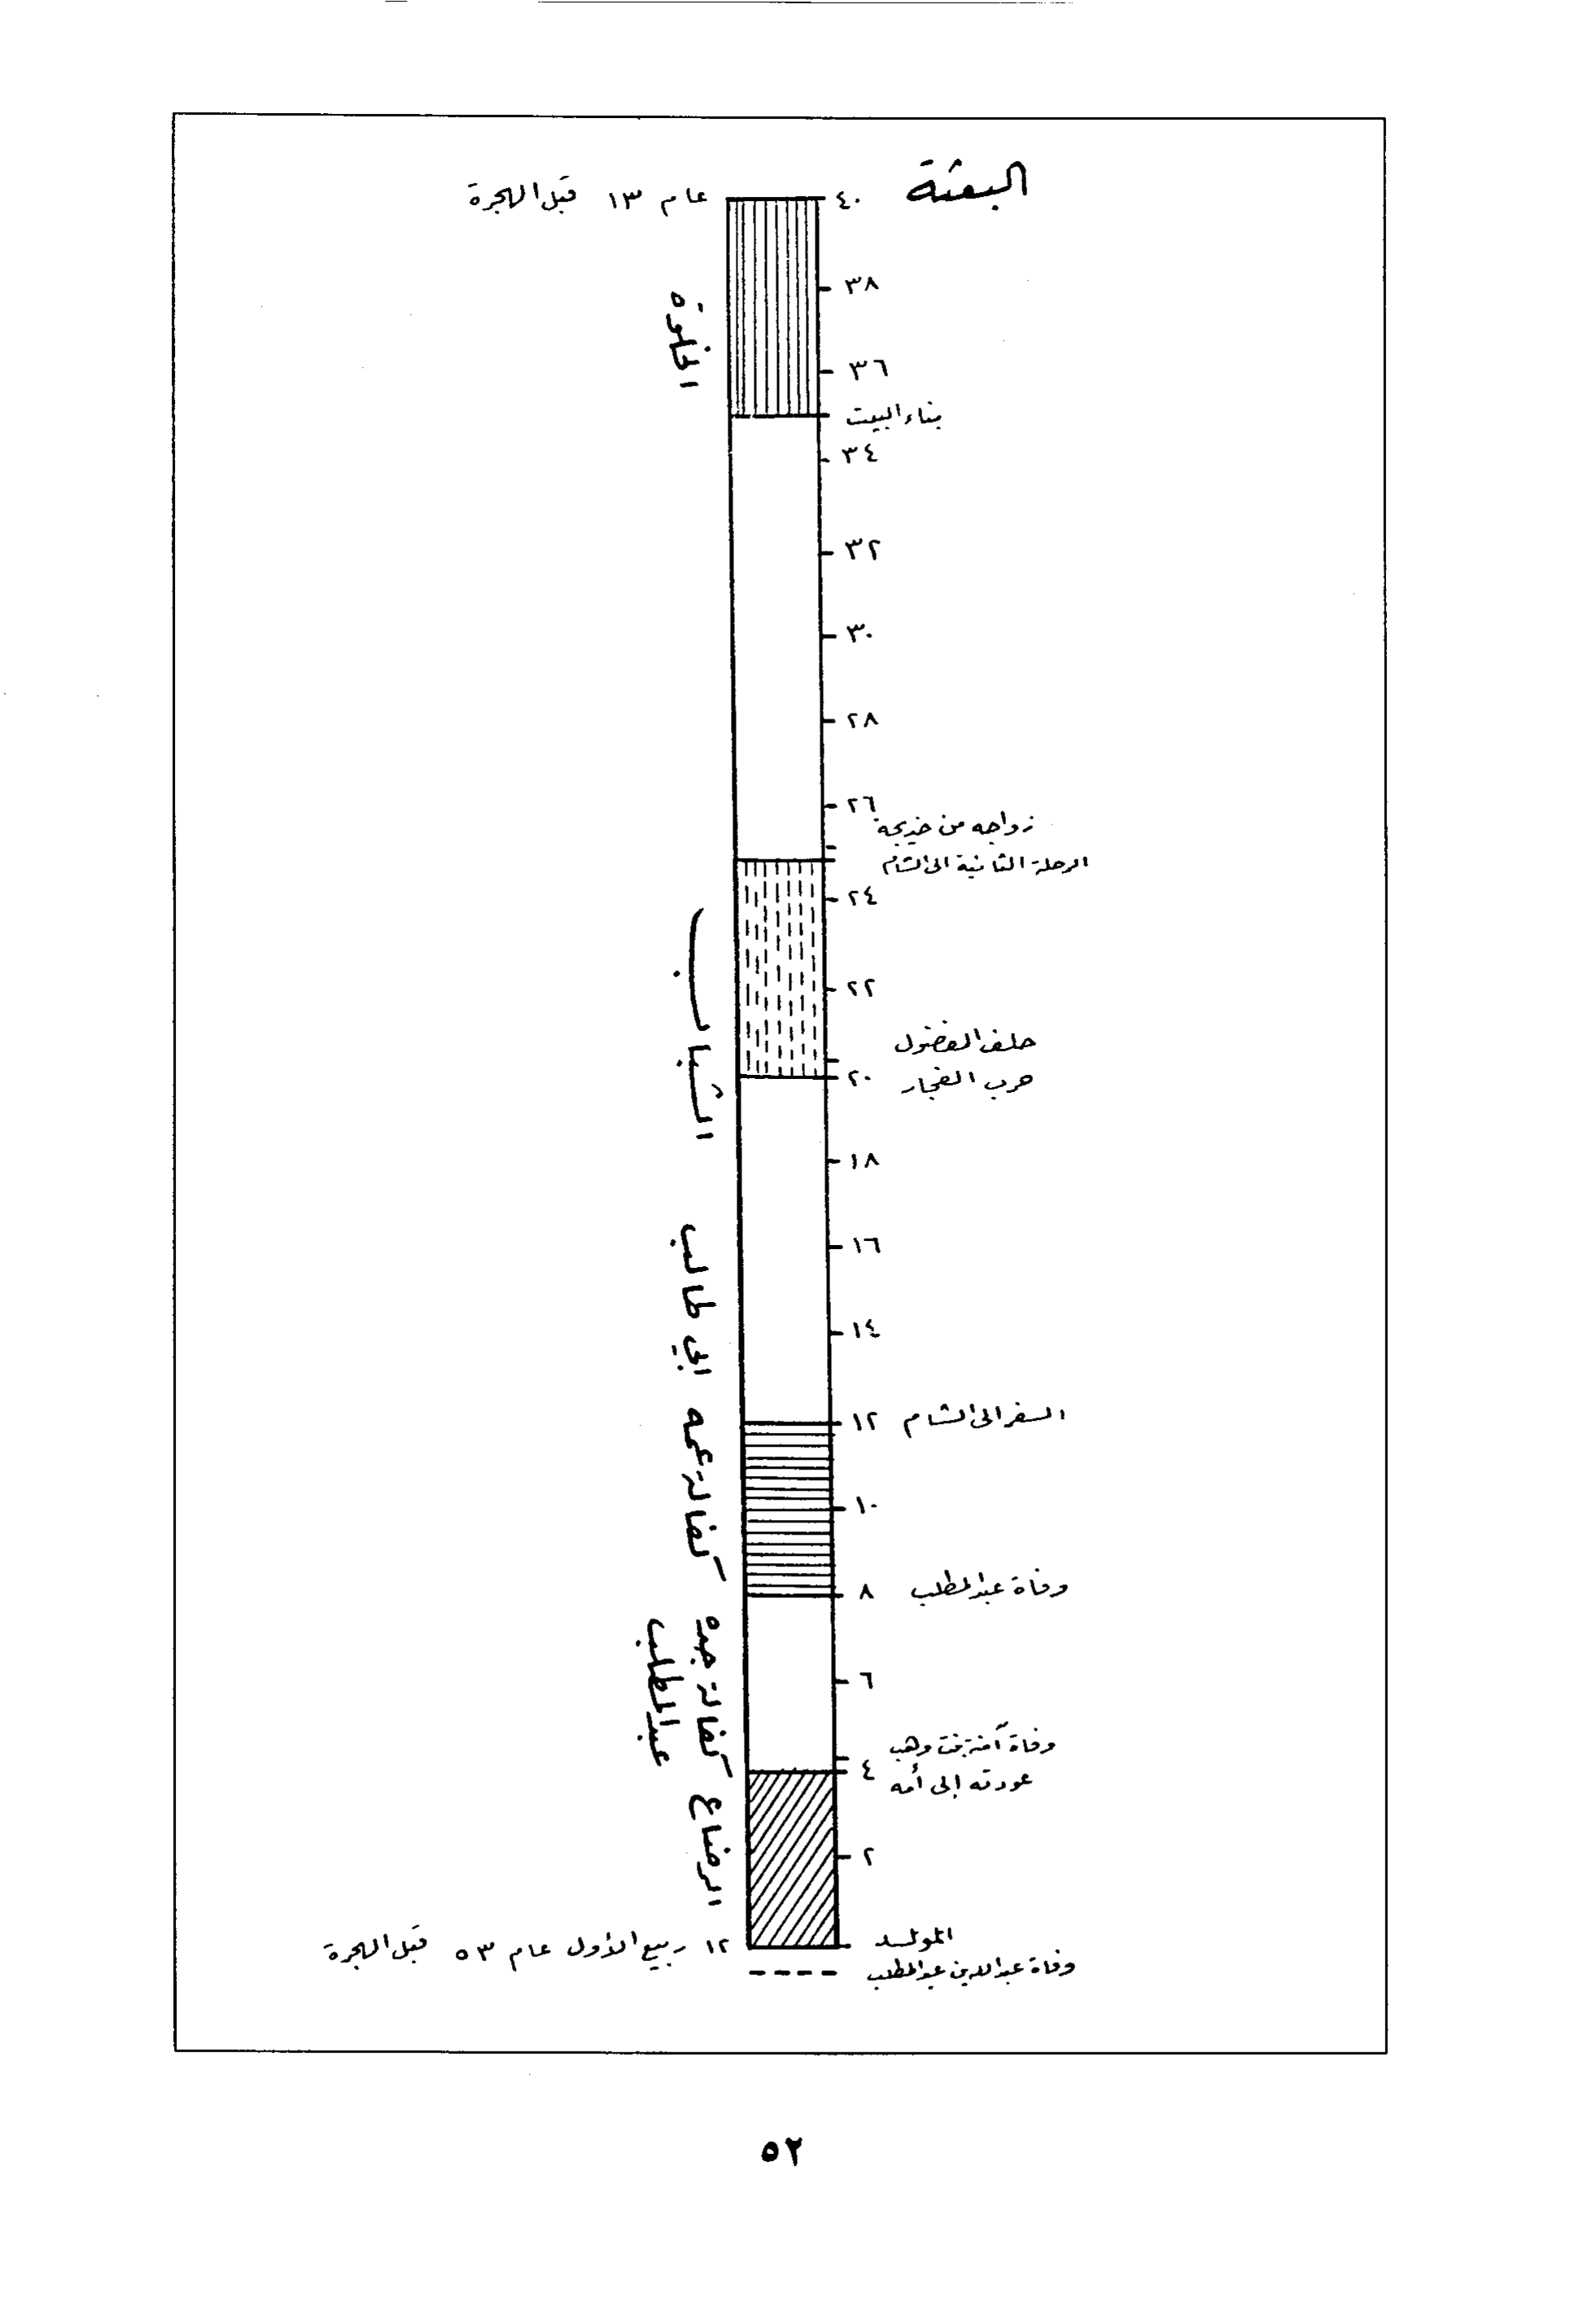 البعثة
٤٠
عام ١٣ قبل الهجرة
٣٨
الخلوة
٣٦
بناء البيت
٣٤
٣٢
٣٠
٢٨
٢٦
زواجه من خديجة
الرحلة الثانية الى الشام
٢٤
الشباب
٢٢
حلف الفضول
٢٠
حرب الفجار
١٨
١٦
كفالة عمه ابي طالب
١٤
السفر الى الشام
١٢
١٠
وفاة عبدالمطلب
٨
كفالة جده
عبدالمطلب
٦
وفاة آمنة بنت وهب
٤
عودته إلى أمه
الرضاع
٢
المولد
١٢ ربيع الأول عام ٥٣ قبل الهجرة
وفاة عبدالله بن عبدالمطلب
٥٢